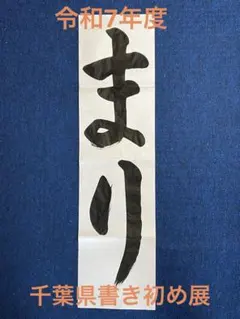 令和7年度
まり
千葉県書き初め展